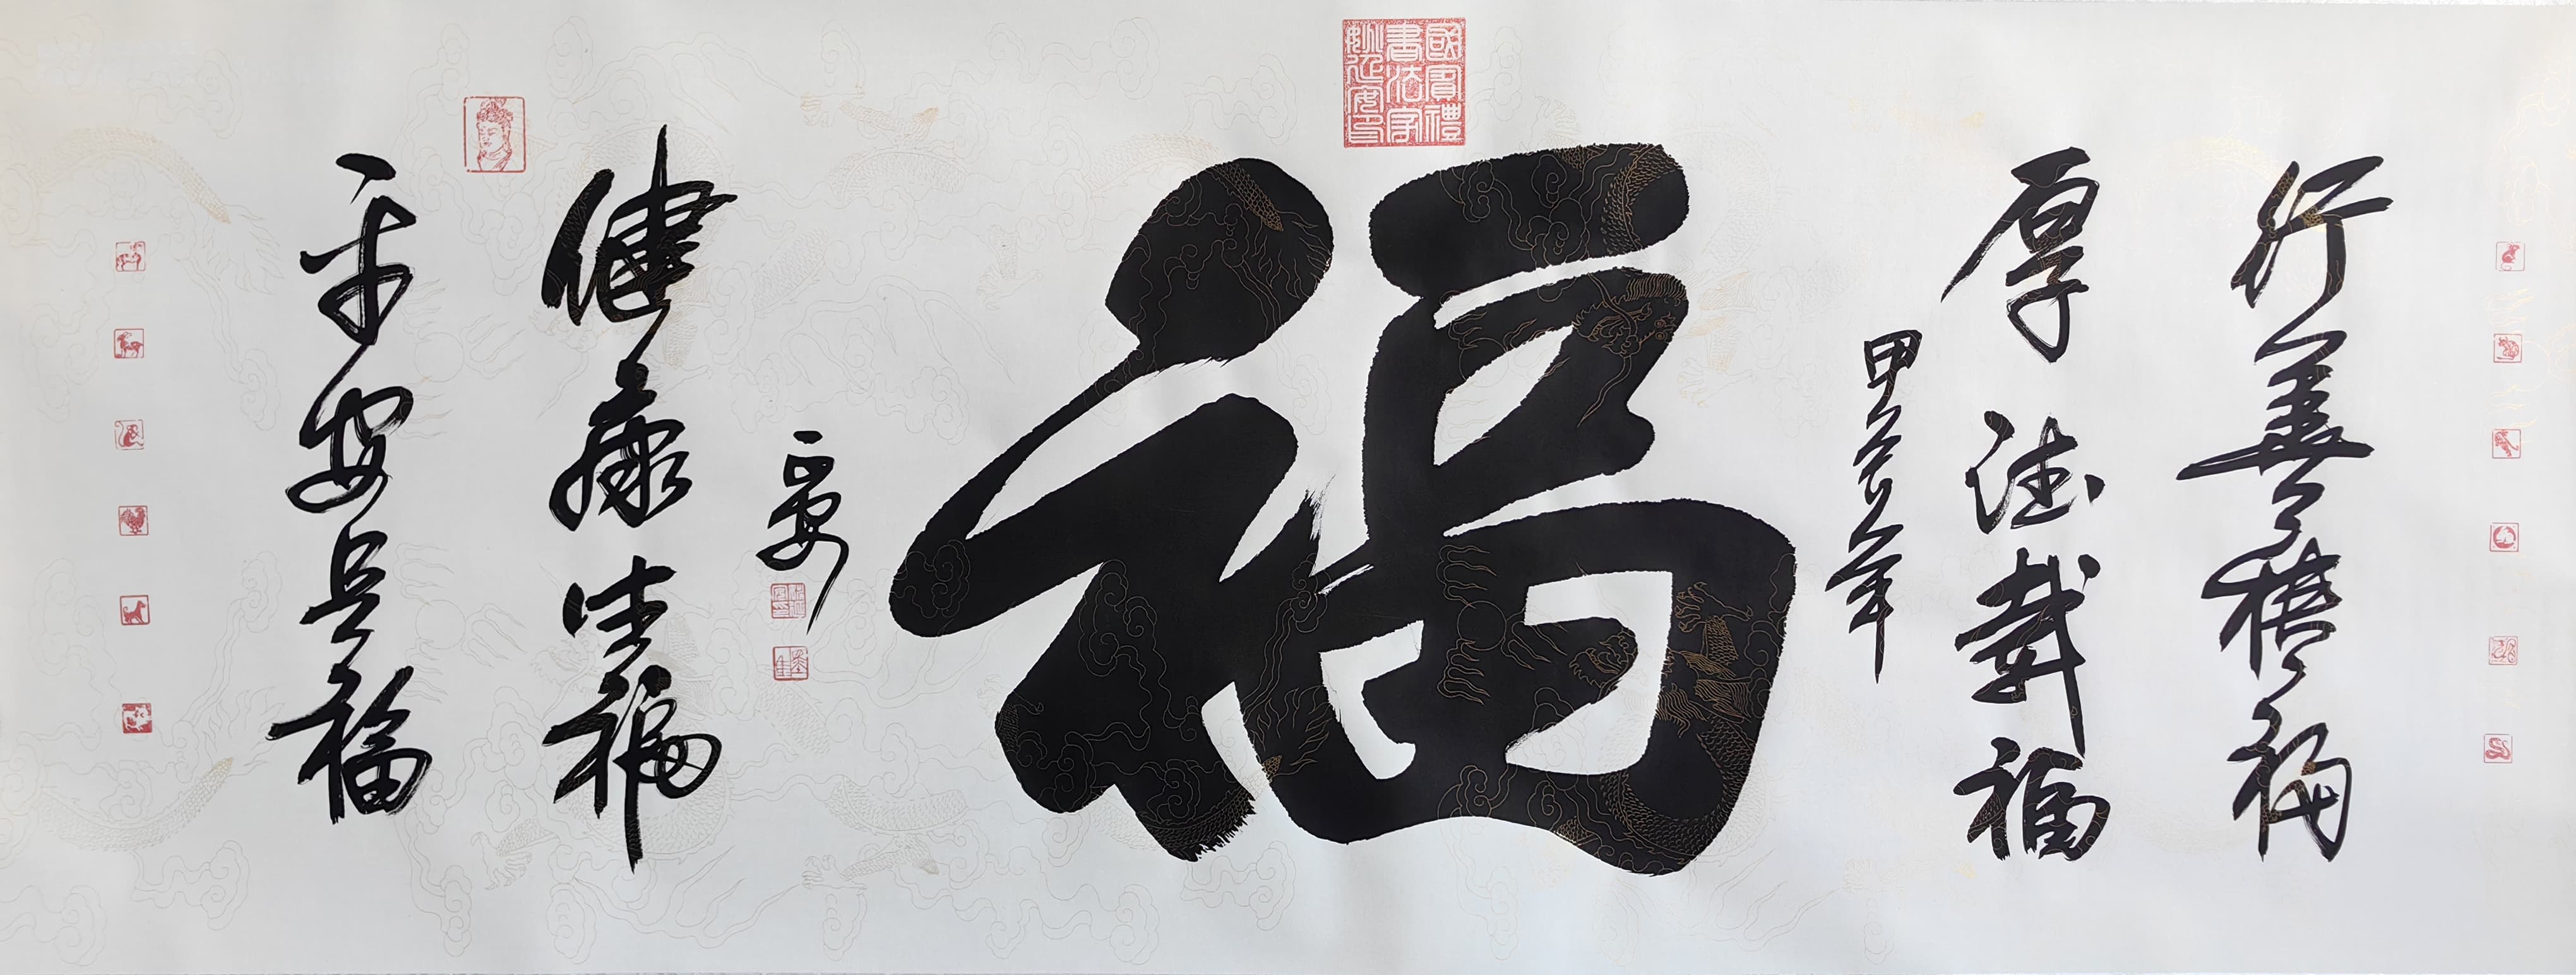 行善積福
厚德載福
甲辰年
國賓禮
書法
福
健康生福
平安是福